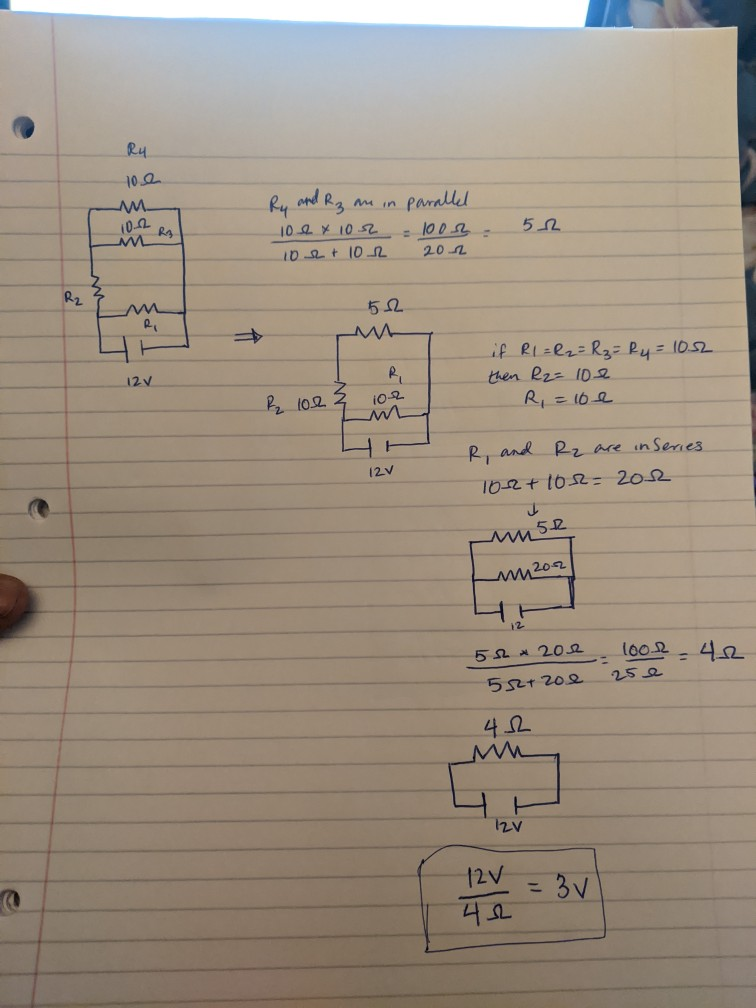 R4
10Ω
10Ω R3
R2
R1
12V
R4 and R3 are in parallel
10Ω × 10Ω / 10Ω + 10Ω = 100Ω / 20Ω = 5Ω
⇒
5Ω
R1
R2 10Ω 10Ω
12V
if R1=R2=R3=R4=10Ω
then R2=10Ω
R1=10Ω
R1 and R2 are in series
10Ω+10Ω=20Ω
↓
5Ω
20Ω
12
5Ω × 20Ω / 5Ω+20Ω = 100Ω / 25Ω = 4Ω
4Ω
12V
12V / 4Ω = 3V